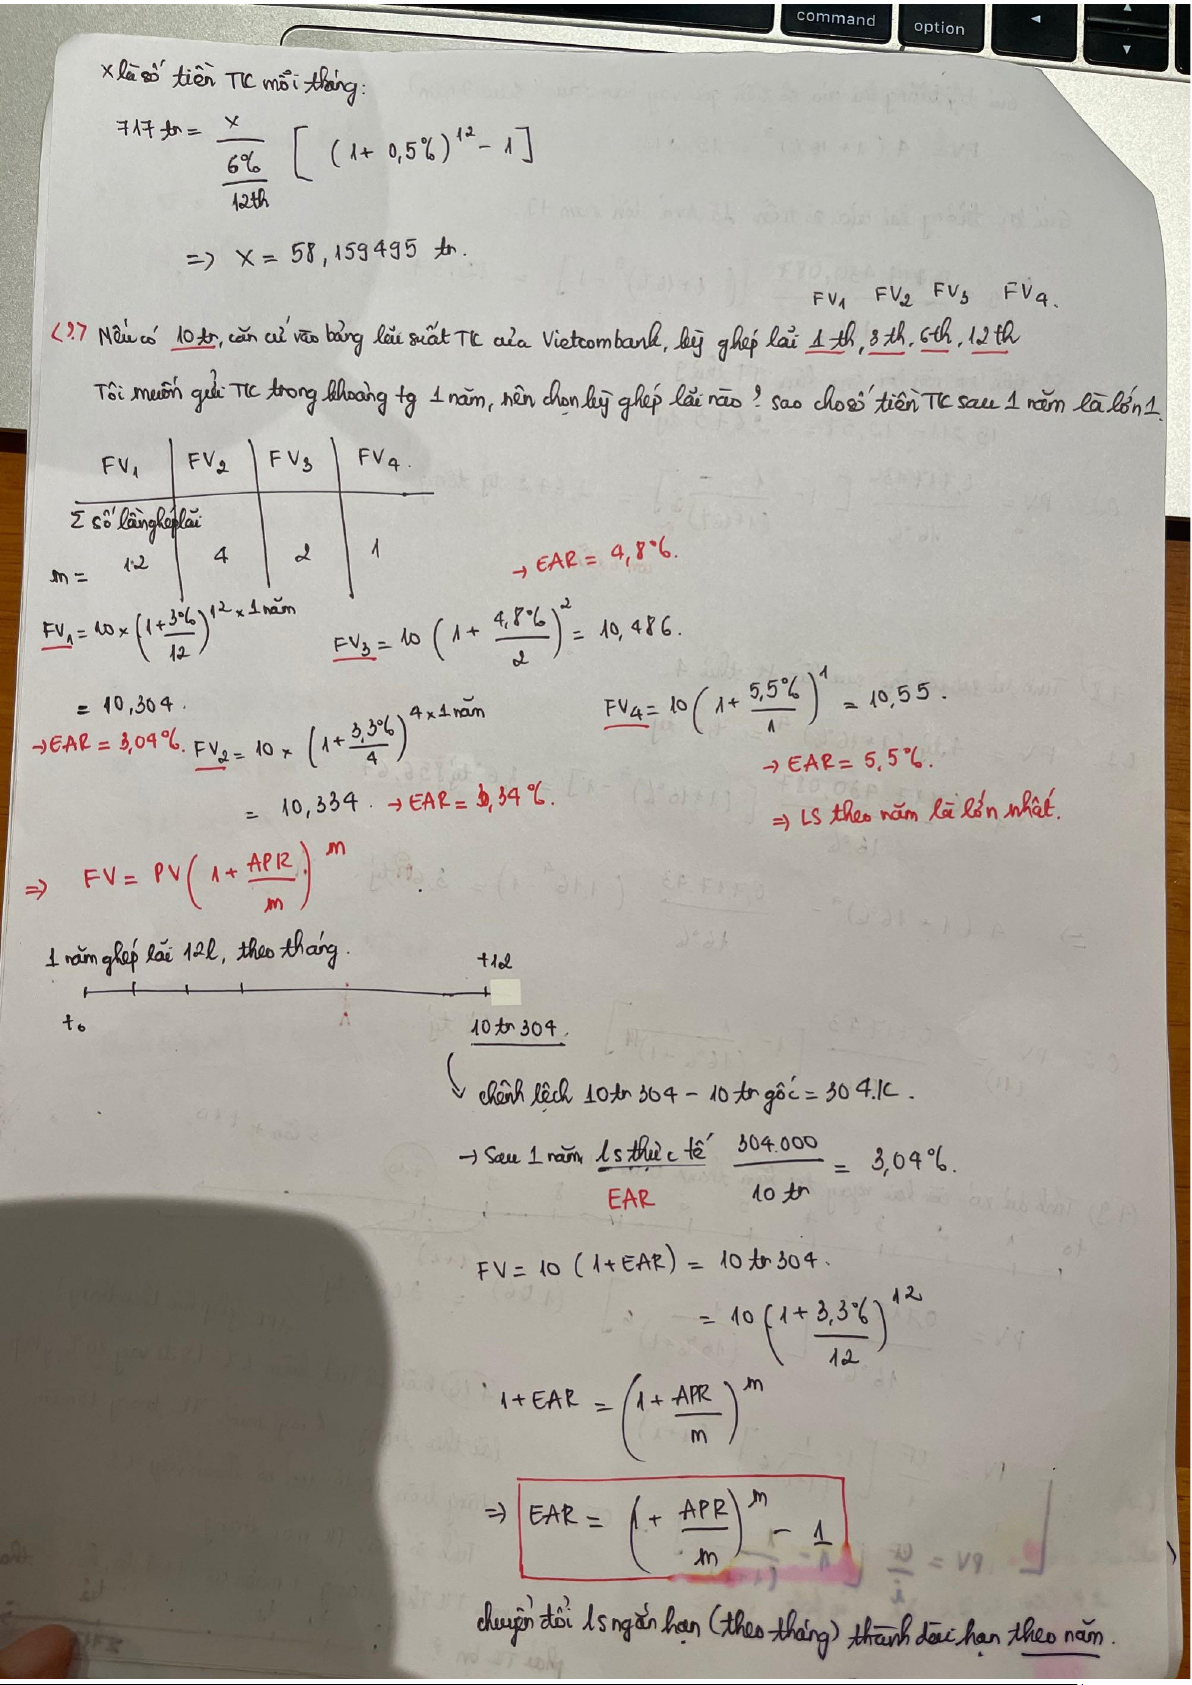 command
option
x là số tiền TK mỗi tháng:
717 tr = x / (6% / 12th) [ (1 + 0,5%)^12 - 1 ]
=> x = 58,159495 tr.
FV1 FV2 FV3 FV4.
<?> Nếu có 10tr, căn cứ vào bảng lãi suất TK của Vietcombank, kỳ ghép lãi 1 th, 3 th, 6th, 12 th
Tôi muốn gửi TK trong khoảng tg 1 năm, nên chọn kỳ ghép lãi nào? sao cho số tiền TK sau 1 năm là lớn 1.
FV1 | FV2 | FV3 | FV4.
Σ số lần ghép lãi
m = 12 | 4 | 2 | 1
→ EAR = 4,8%.
FV1 = 10 × (1 + 3%/12)^12 × 1 năm
= 10,304.
→ EAR = 3,04%.
FV3 = 10 (1 + 4,8%/2)^2 = 10,486.
FV2 = 10 × (1 + 3,3%/4)^4 × 1 năm
= 10,334. → EAR = 3,34%.
FV4 = 10 (1 + 5,5%/1)^1 = 10,55.
→ EAR = 5,5%.
=> LS theo năm là lớn nhất.
=> FV = PV (1 + APR/m)^m
1 năm ghép lãi 12l, theo tháng.
t0
t12
10 tr 304.
chênh lệch 10tr 304 - 10 tr gốc = 304.K.
→ Sau 1 năm, ls thực tế 304.000 / 10 tr = 3,04%.
EAR
FV = 10 (1 + EAR) = 10 tr 304.
= 10 (1 + 3,3%/12)^12
1 + EAR = (1 + APR/m)^m
=> EAR = (1 + APR/m)^m - 1
chuyển đổi ls ngắn hạn (theo tháng) thành dài hạn theo năm.